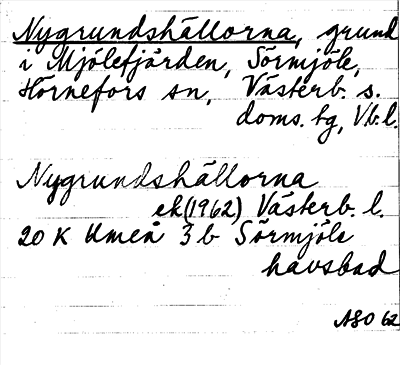 Nygrundshällorna, grund
i Mjölefjärden, Sörmjöle,
Hörnefors sn, Västerb. s.
doms. tg, Vb. l.
Nygrundshällorna
ek (1962) Västerb. l.
20 K Umeå 3 b Sörmjöle
havsbad
ASO 62